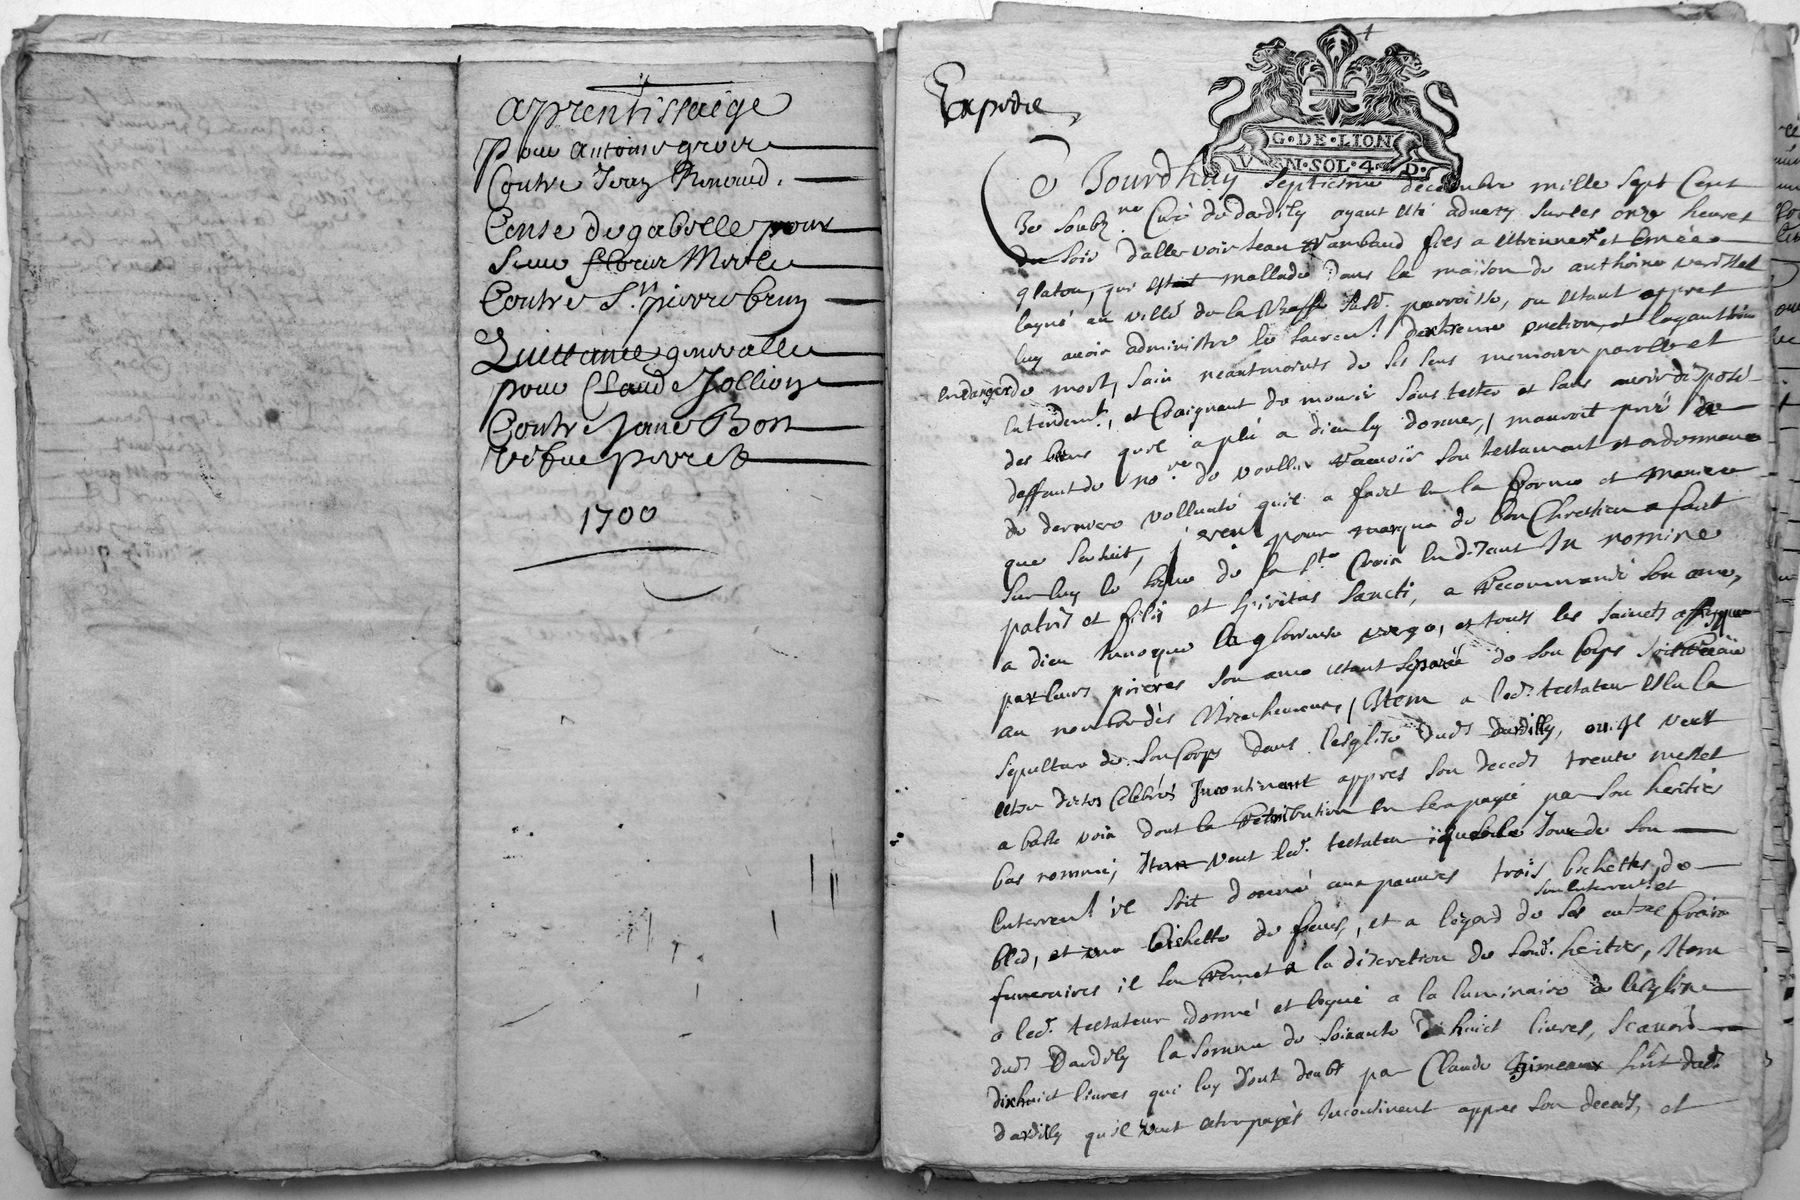 aprentissaige
pour antoine
Contre Jean Renaud.
Cense de gabelle pour
Sieur
Contre Sr. pierre brun
Quittance generalle
pour Claude Jollion
Contre Jane Bost
vefue
1700
Expedie
G·DE·LION
SOL·4·D·
Cejourdhuy septiesme decembre mille sept Cent
Je soubz.ne Curé de dardily ayant esté adverty sur les onze heures
du soir d'aller voir Jean Rambaud fils a Estienne et
qui estoit mallade dans la maison de anthoine
en ville de la parroisse, ou estant appres
luy avoir administré le sacremt. dextreme onction, et layant
en danger de mort, sain neantmoints de ses sens memoire parolle et
entendemt., et craignant de mourir sans tester et sans avoir disposé
des biens quil a plu a dieu luy donner, mauroit prié a
deffaut de no.re de voulloir recevoir son testament et ordonnance
de derniere vollunté quil a faict en la forme et maniere
que sensuit, premt pour marque de bon Chrestien a fait
sur luy le signe de la ste Croix en disant In nomine
patris et filii et spiritus sancti, a recommandé son ame
a dieu Invoqué la glorieuse vierge, et touts les saincts affinque
par leurs prieres son ame estant separée de son Corps soit
au nombre des bienheureux, Item a led. testateur eslu la
sepulture de son Corps dans l'esglise dud. dardilly, ou il veut
estre dictes Celebrés Incontinent appres son deceds trente messes
a basse voix dont la retribution en sera payée par son heritier
bas nommé, Item veut led. testateur que le Jour de son
enterremt. il soit donné aux pauvres trois bichettes de
bled, et une bichette de feves, et a legard de son enterremt. et ses autres frais
funeraires il sen remet a la discretion de sond. heritier, Item
a led. testateur donné et legué a la luminaire de lesglise
dud. Dardily la somme de soixante dixhuict livres, scavoir
dixhuict livres qui luy sont deubs par Claude dud.
dardilly quil veut estre payés Incontinent appres son deceds, et